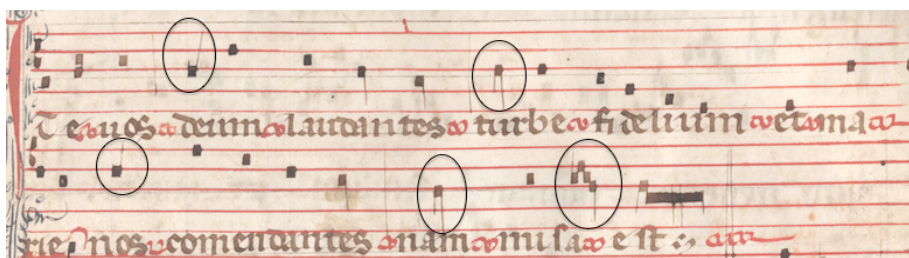 Te uos deum laudantes turbe fidelium et oma
rie nos comendantes nam